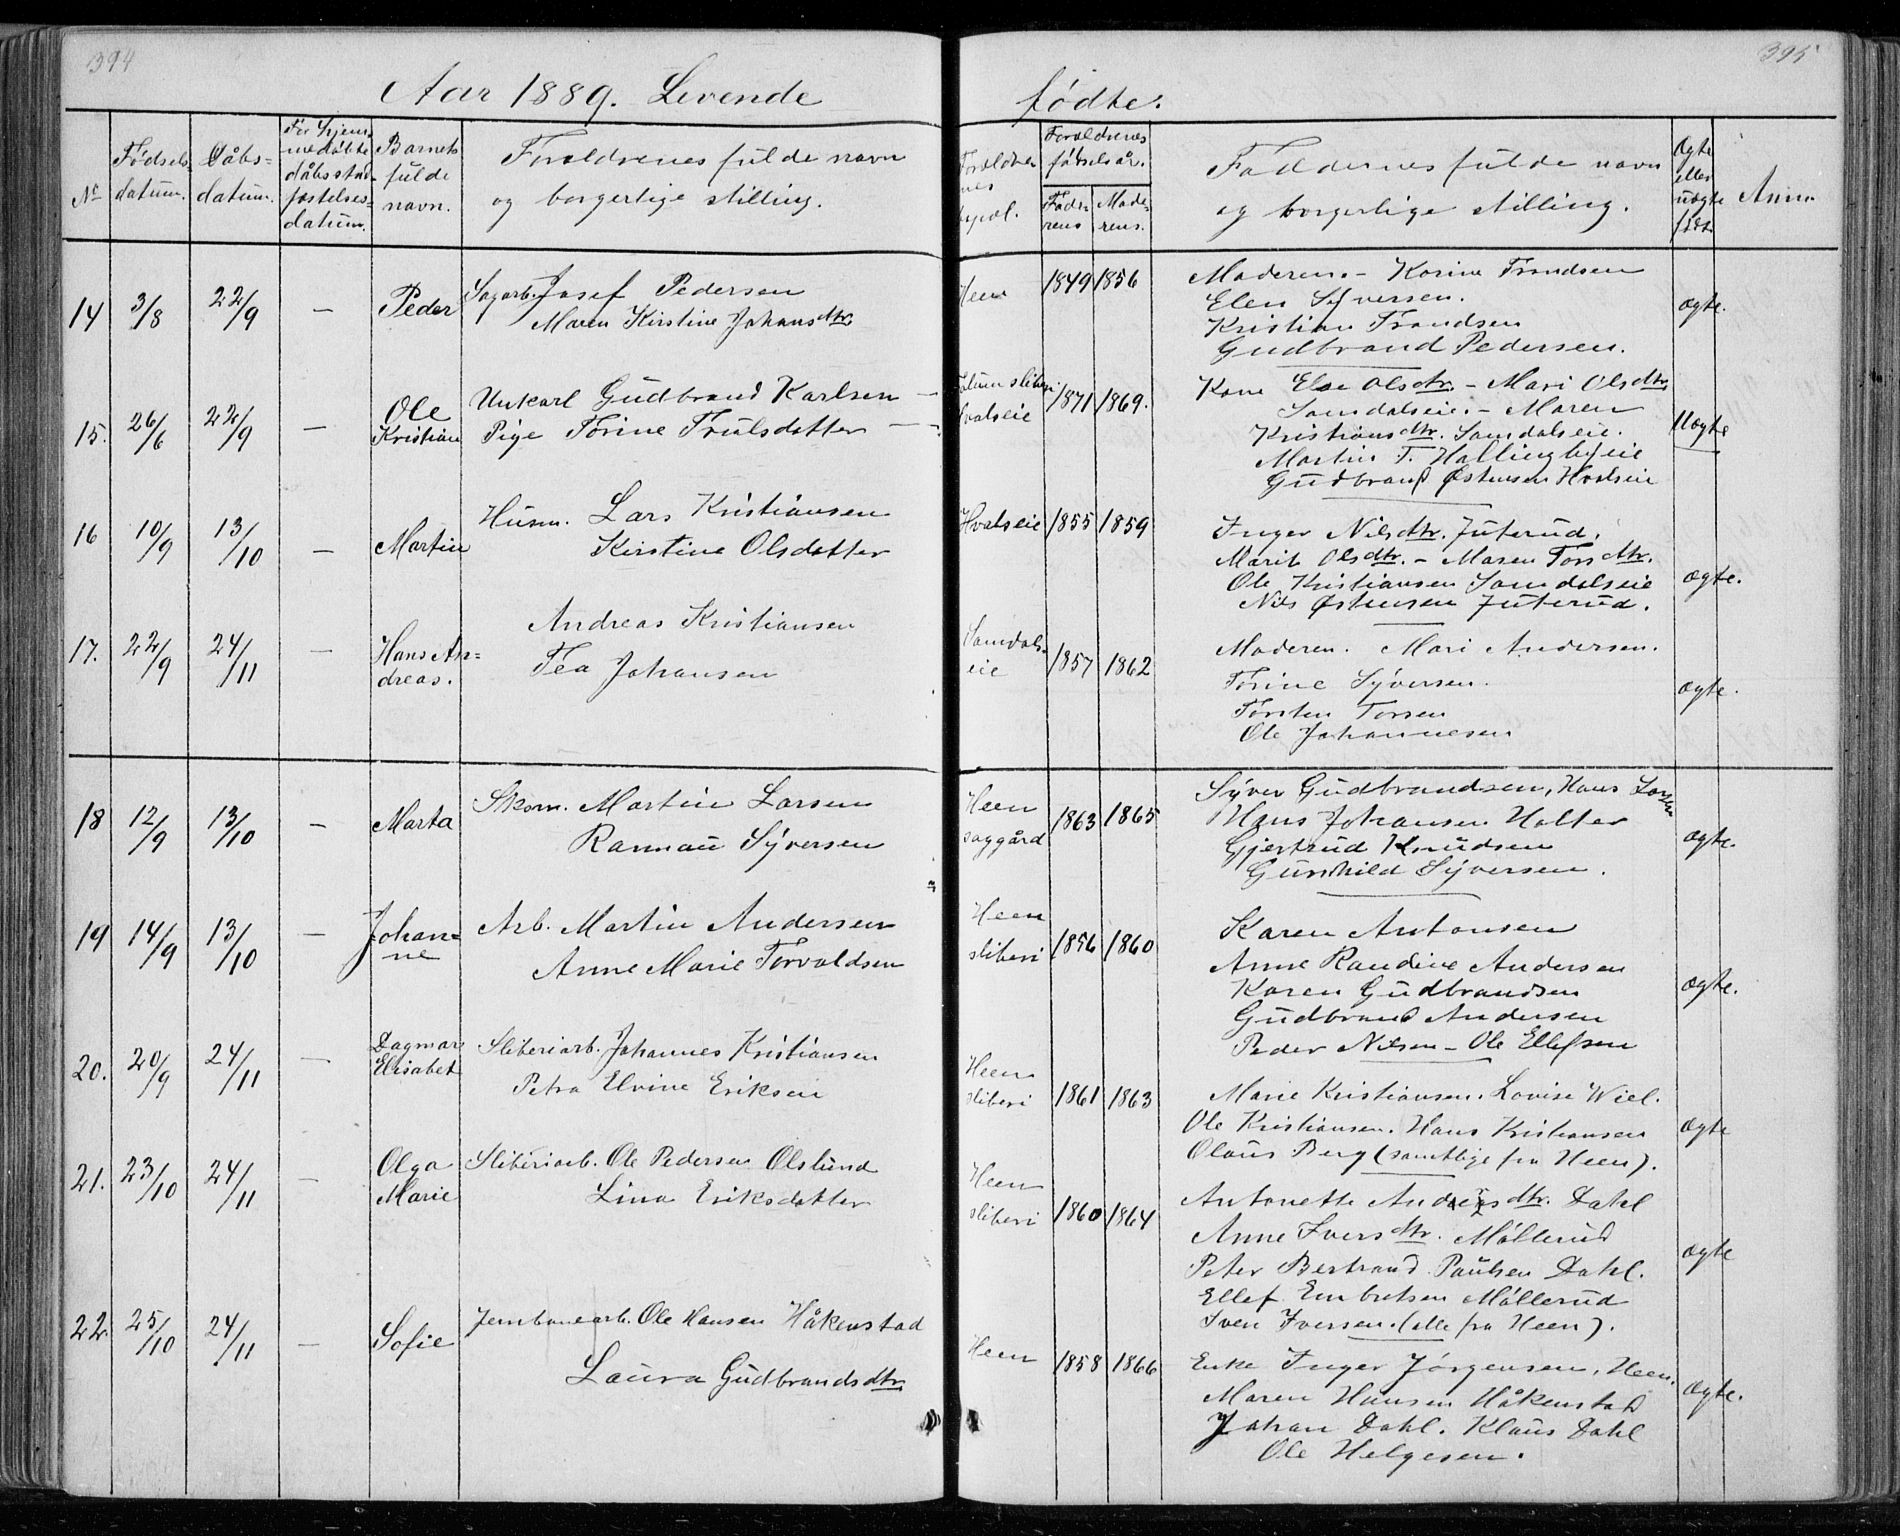 394
395
Aar 1889. Levende
fødte.
No
Fødsels-
datum.
Dåbs-
datum.
For hjem-
medøbte
dåbsstad-
fæstelses-
datum.
Barnets
fulde
navn.
Forældrenes fulde navn
og borgerlige stilling.
Forældre-
nes
Forældrenes
fødselsår.
Fade-
rens
Mode-
rens.
Faddernes fulde navn
og borgerlige stilling.
Ægte
eller
uægte
født.
Anm.
14
3/8
22/9
—
Peder
Sagarb. Josef Pedersen
Maren Kirstine Johansdtr.
Heen
1849
1856
Moderen. - Karine Frandsen
Elen Syversen.
Kristian Frandsen
Gudbrand Pedersen.
ægte.
15.
26/6
22/9
—
Ole
Kristian
Unkarl Gudbrand Karlsen —
Pige Torine Trulsdatter —
Hvalseie
1871
1869.
Kone Else Olsdtr. - Mari Olsdtr.
Samdalseie. - Maren
Kristiansdtr. Samdalseie.
Martin T. Hallingbyeie
Gudbrand Østensen Hvalseie
Uægte
16
10/9
13/10
—
Martin
Husm. Lars Kristiansen
Kirstine Olsdatter
Hvalseie
1855
1859
Inger Nilsdtr. Juterud.
Marit Olsdtr. - Maren Torsdtr.
Ole Kristiansen Samdalseie
Nils Østensen Juterud.
ægte.
17.
22/9
24/11
—
Hans An-
dreas.
Andreas Kristiansen
Tea Johansen
Samdals-
eie
1857
1862
Moderen. Mari Andersen.
Torine Syversen.
Torsten Torsen
Ole Johannesen
ægte.
18
12/9
13/10
—
Marta
Skom. Martin Larsen
Rannau Syversen
Heen
saggård
1863
1865
Syver Gudbrandsen, Hans Larsen
Hans Johansen Holter
Gjertrud Knudsen
Gunhild Syversen.
ægte.
19
14/9
13/10
—
Johan-
ne
Arb. Martin Andersen
Anne Marie Torvaldsen
Heen
sliberi
1856
1860
Karen Antonsen
Anne Randine Andersen
Karen Gudbrandsen
Gudbrand Andersen
Peder Nilsen - Ole Ellefsen
ægte.
20.
20/9
24/11
—
Dagmar
Elisabet
Sliberiarb. Johannes Kristiansen
Petra Elvine Eriksen
Heen
sliberi
1861
1863
Marie Kristiansen. Lovise Wiel.
Ole Kristiansen. Hans Kristiansen
Olaus Berg (samtlige fra Heen).
ægte
21.
23/10
24/11
—
Olga
Marie
Sliberiarb. Ole Pedersen Olslund
Lina Eriksdatter
Heen
sliberi
1860
1864
Antonette Andersdtr. Dahl
Anne Iversdtr. Møllerud
Peter Bertrand Paulsen Dahl.
Ellef Embretsen Møllerud
Iven Iversen. (alle fra Heen).
ægte
22.
25/10
24/11
—
Sofie
Jernbanearb. Ole Hansen Håkenstad
Laura Gudbrandsdtr.
Heen
1858
1866
Enke Inger Jørgensen, Heen.
Maren Hansen Håkenstad
Johan Dahl. Klaus Dahl
Ole Helgesen.
ægte.